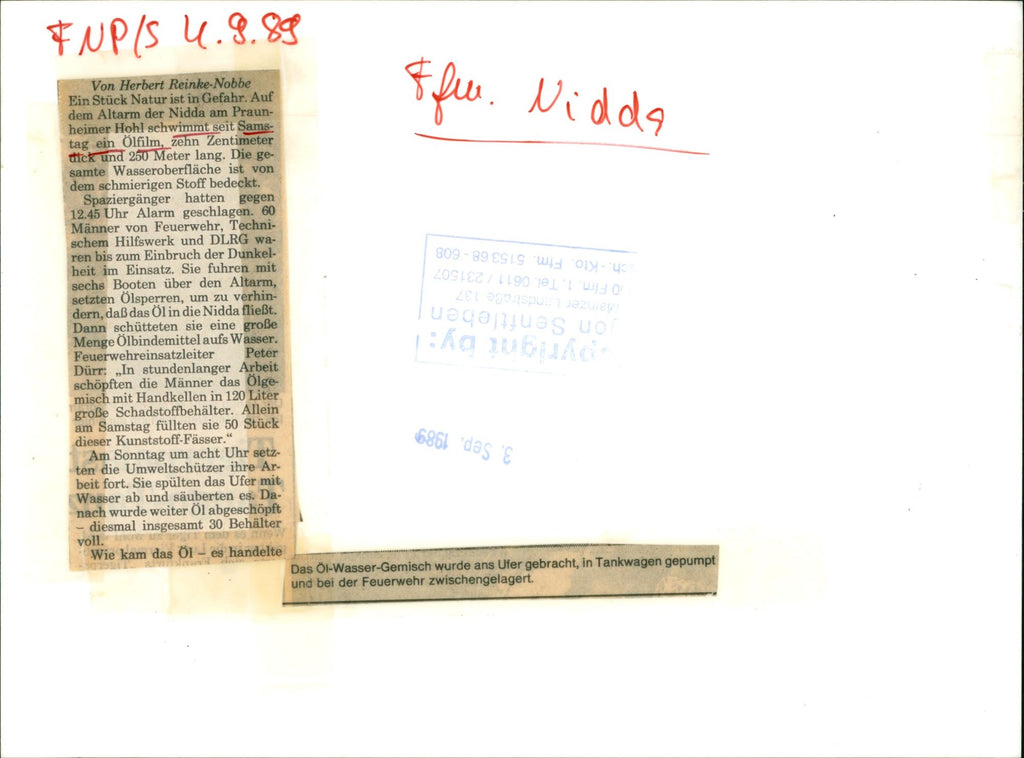 FNP/S 4.9.89
Ffm. Nidda
Von Herbert Reinke-Nobbe
Ein Stück Natur ist in Gefahr. Auf
dem Altarm der Nidda am Praun-
heimer Hohl schwimmt seit Sams-
tag ein Ölfilm, zehn Zentimeter
dick und 250 Meter lang. Die ge-
samte Wasseroberfläche ist von
dem schmierigen Stoff bedeckt.
Spaziergänger hatten gegen
12.45 Uhr Alarm geschlagen. 60
Männer von Feuerwehr, Techni-
schem Hilfswerk und DLRG wa-
ren bis zum Einbruch der Dunkel-
heit im Einsatz. Sie fuhren mit
sechs Booten über den Altarm,
setzten Ölsperren, um zu verhin-
dern, daß das Öl in die Nidda fließt.
Dann schütteten sie eine große
Menge Ölbindemittel aufs Wasser.
Feuerwehreinsatzleiter Peter
Dürr: „In stundenlanger Arbeit
schöpften die Männer das Ölge-
misch mit Handkellen in 120 Liter
große Schadstoffbehälter. Allein
am Samstag füllten sie 50 Stück
dieser Kunststoff-Fässer.“
Am Sonntag um acht Uhr setz-
ten die Umweltschützer ihre Ar-
beit fort. Sie spülten das Ufer mit
Wasser ab und säuberten es. Da-
nach wurde weiter Öl abgeschöpft
– diesmal insgesamt 30 Behälter
voll.
Wie kam das Öl – es handelte
Das Öl-Wasser-Gemisch wurde ans Ufer gebracht, in Tankwagen gepumpt
und bei der Feuerwehr zwischengelagert.
pyright by:
on Senftleben
Mainzer Landstraße 137
0 Ffm. 1, Tel. 0611 / 231507
ch.-Kto. Ffm. 5153 68-608
3. Sep. 1989